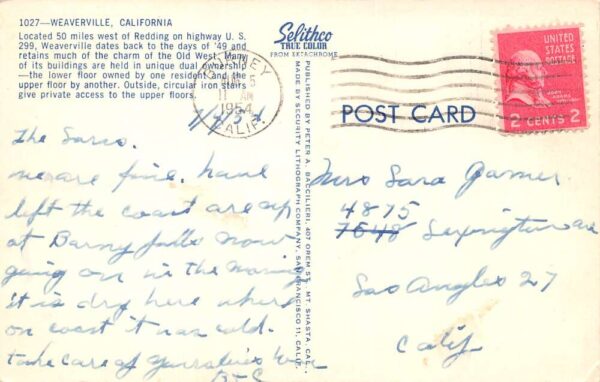 1027—WEAVERVILLE, CALIFORNIA
Located 50 miles west of Redding on highway U. S.
299, Weaverville dates back to the days of '49 and
retains much of the charm of the Old West. Many
of its buildings are held in unique dual ownership
—the lower floor owned by one resident and the
upper floor by another. Outside, circular iron stairs
give private access to the upper floors.
Selithco
TRUE COLOR
FROM EKTACHROME
UNITED
STATES
POSTAGE
JOHN ADAMS
2 CENTS 2
5
AM
1954
CALIF.
POST CARD
PUBLISHED BY PETER A. BACCILIERI, 407 OREM ST., MT. SHASTA, CAL.
MADE BY SECURITY LITHOGRAPH COMPANY, SAN FRANCISCO 11, CALIF.
we are fine. have
left the coast are up
at Barny falls now
going on in the
it is dry here where
on coast it was cold.
take care of
Mrs Sara Garner
4875
7548 Lexington ave
Los Angles 27
Calif